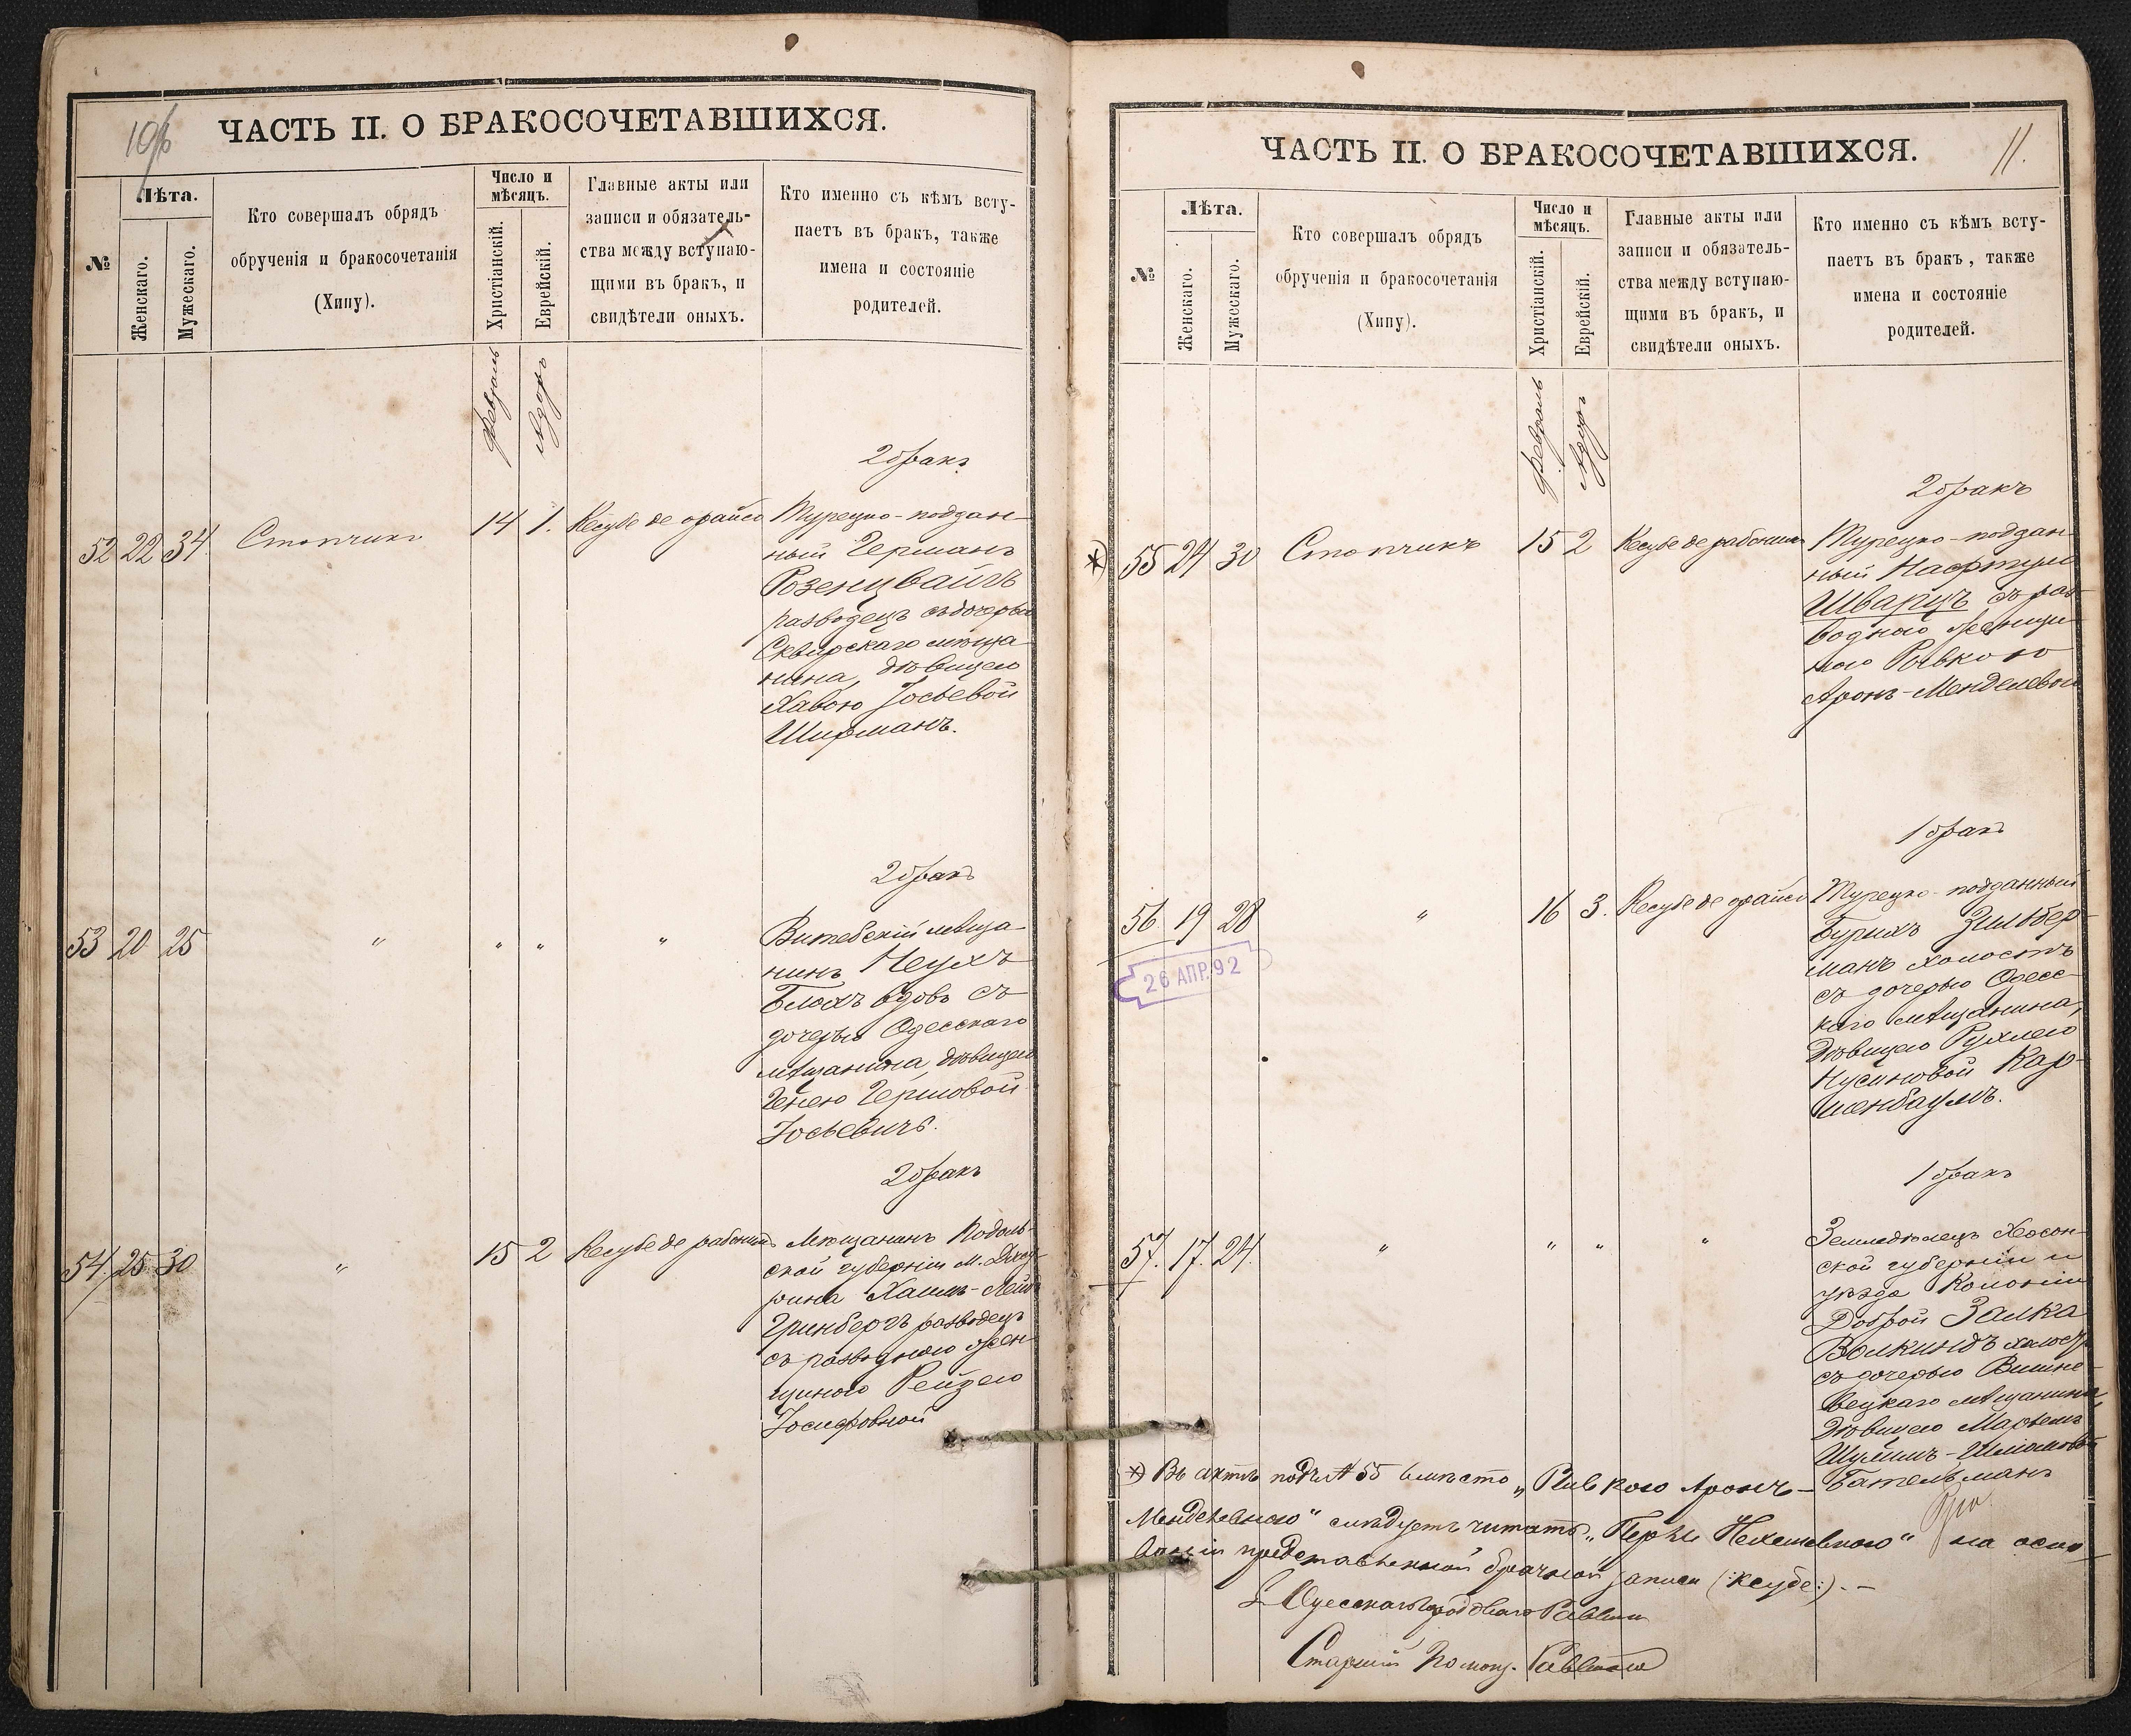 10/б
ЧАСТЬ II. О БРАКОСОЧЕТАВШИХСЯ.
№
Лѣта.
Женскаго.
Мужескаго.
Кто совершалъ обрядъ
обрученія и бракосочетанія
(Хипу).
Число и
мѣсяцъ.
Христіанскій.
Еврейскій.
Главные акты или
записи и обязатель-
ства между вступаю-
щими въ бракъ, и
свидѣтели оныхъ.
Кто именно съ кѣмъ всту-
паетъ въ бракъ, также
имена и состояніе
родителей.
Февраль
Адоръ
2 бракъ
52 22 34 Стопчикъ 14 1. Кесубе де орайсо Турецко-поддан-
ный Германъ
Розенцвайгъ
разводецъ съ дочерью
Сквирскаго мѣща-
нина, дѣвицею
Хавою Іосьевой
Ширманъ.
2 бракъ
53 20 25 " " " " Витебскій мѣща-
нинъ Неухъ
Блохъ вдовъ съ
дочерью Одесскаго
мѣщанина, дѣвицею
Генею Гершовой
Іосьевичъ.
2 бракъ
54 25 30 " 15 2 Кесубе де рабонинъ Мѣщанинъ Подоль-
ской губерніи м. Джу-
рина Хаимъ-Лейб
Гринбергъ разводецъ
съ разводною жен-
щиною Рейзею
Іосифовной
ЧАСТЬ II. О БРАКОСОЧЕТАВШИХСЯ.
11.
№
Лѣта.
Женскаго.
Мужескаго.
Кто совершалъ обрядъ
обрученія и бракосочетанія
(Хипу).
Число и
мѣсяцъ.
Христіанскій.
Еврейскій.
Главные акты или
записи и обязатель-
ства между вступаю-
щими въ бракъ, и
свидѣтели оныхъ.
Кто именно съ кѣмъ всту-
паетъ въ бракъ, также
имена и состояніе
родителей.
Февраль
Адоръ
2 бракъ
*) 55 24 30 Стопчикъ 15 2 Кесубе де рабонинъ Турецко-поддан-
ный Нафтули
Шварцъ съ раз-
водною женщи-
ною Ривкою
Аронъ-Менделевой
1 бракъ
56 19 28 " 16 3. Кесубе де орайсо Турецко-подданный
Бурихъ Зильбер-
манъ холостъ
съ дочерью Одесс-
каго мѣщанина,
дѣвицею Рухлею
Нусиновой Кар-
шенбаумъ.
26 АПР. 92
1 бракъ
57. 17. 24. " " " " Земледѣлецъ Херсон-
ской губерніи и
уѣзда Колоніи
Доброй Залка
Волкиндъ холост
съ дочерью Вишне-
вецкаго мѣщанина,
дѣвицею Марьемъ
Шулимъ-Шліомовой
Гательманъ
*) Въ актѣ подъ № 55 вмѣсто „Ривкою Аронъ-
Менделевною" слѣдуетъ читать „Перлы Нехемевною" на осно-
ваніи представленной брачной записи (:Ксубе:). –
Одесскаго Городоваго Раввина
Старшій Помощ. Раввина